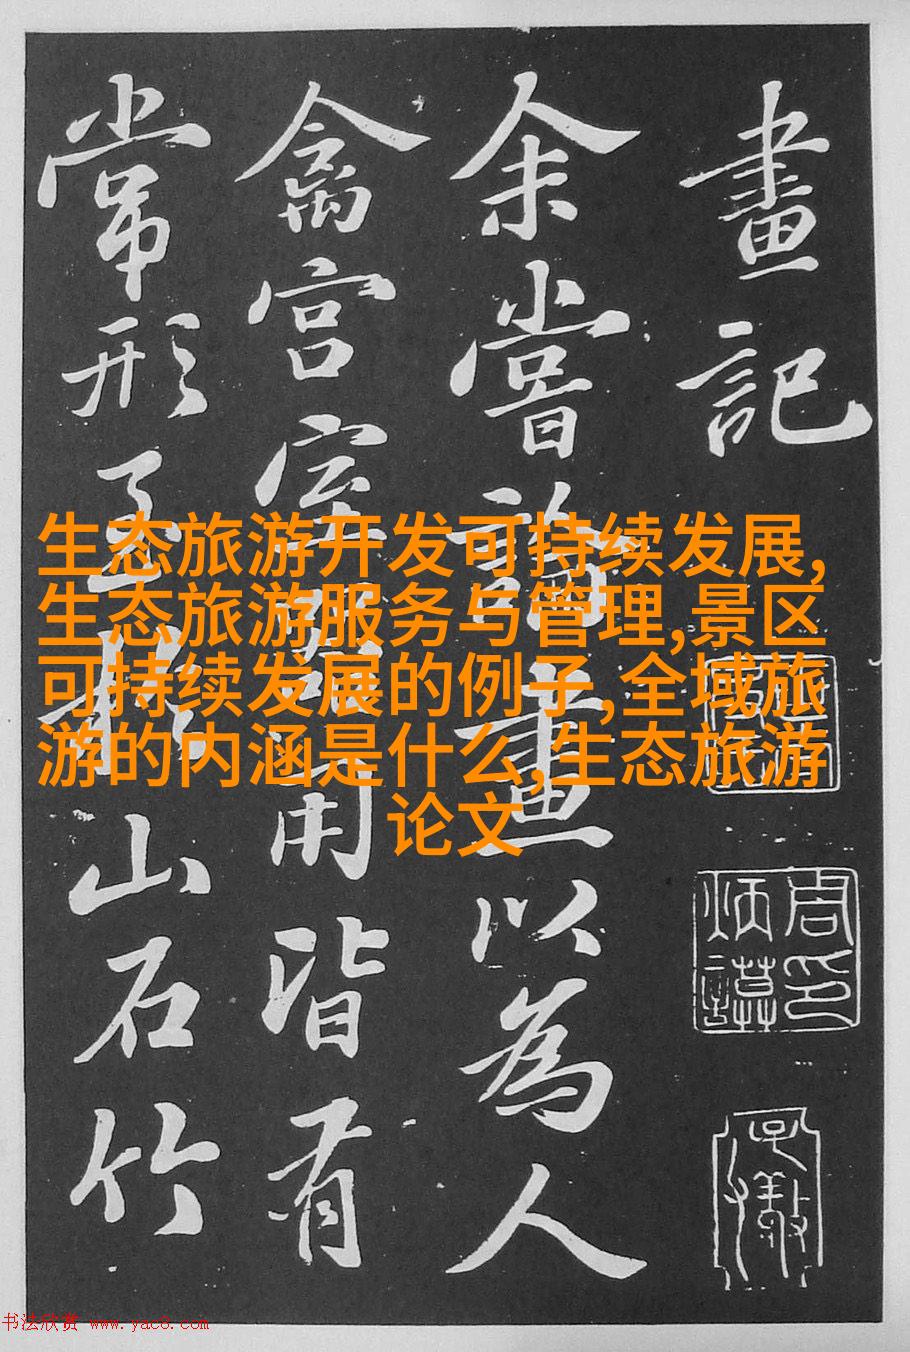 畫記
余嘗論畫以為人
禽宮室器用皆有
常形至於山石竹
生态旅游开发可持续发展,
生态旅游服务与管理,景区
可持续发展的例子,全域旅
游的内涵是什么,生态旅游
论文
书法欣赏 www.yac8.com